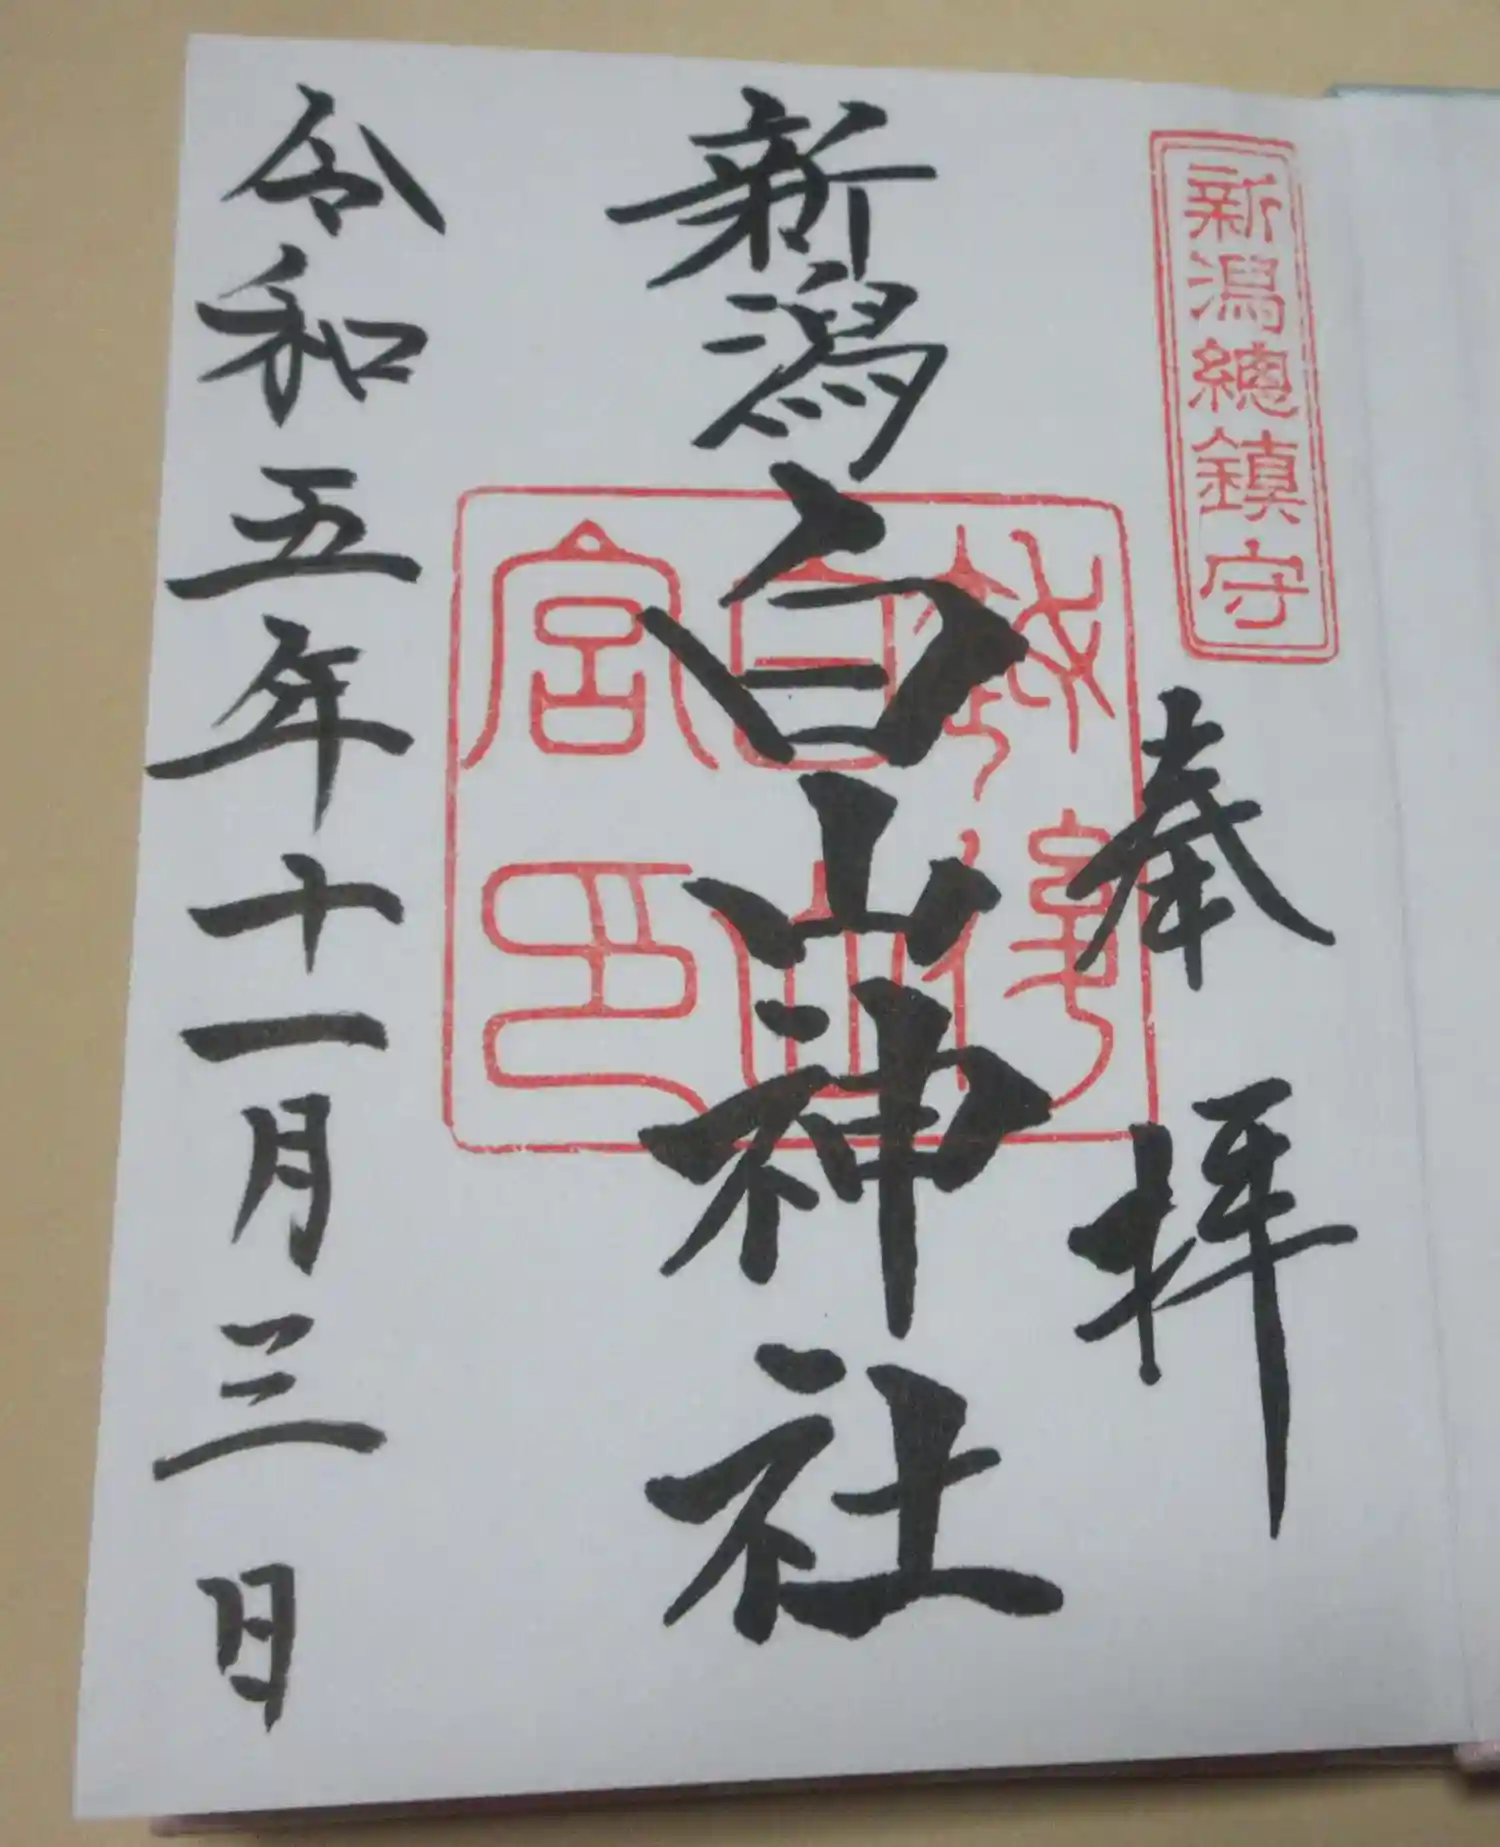 新潟總鎮守
奉拝
新潟白山神社
令和五年十一月三日
白山
宮印